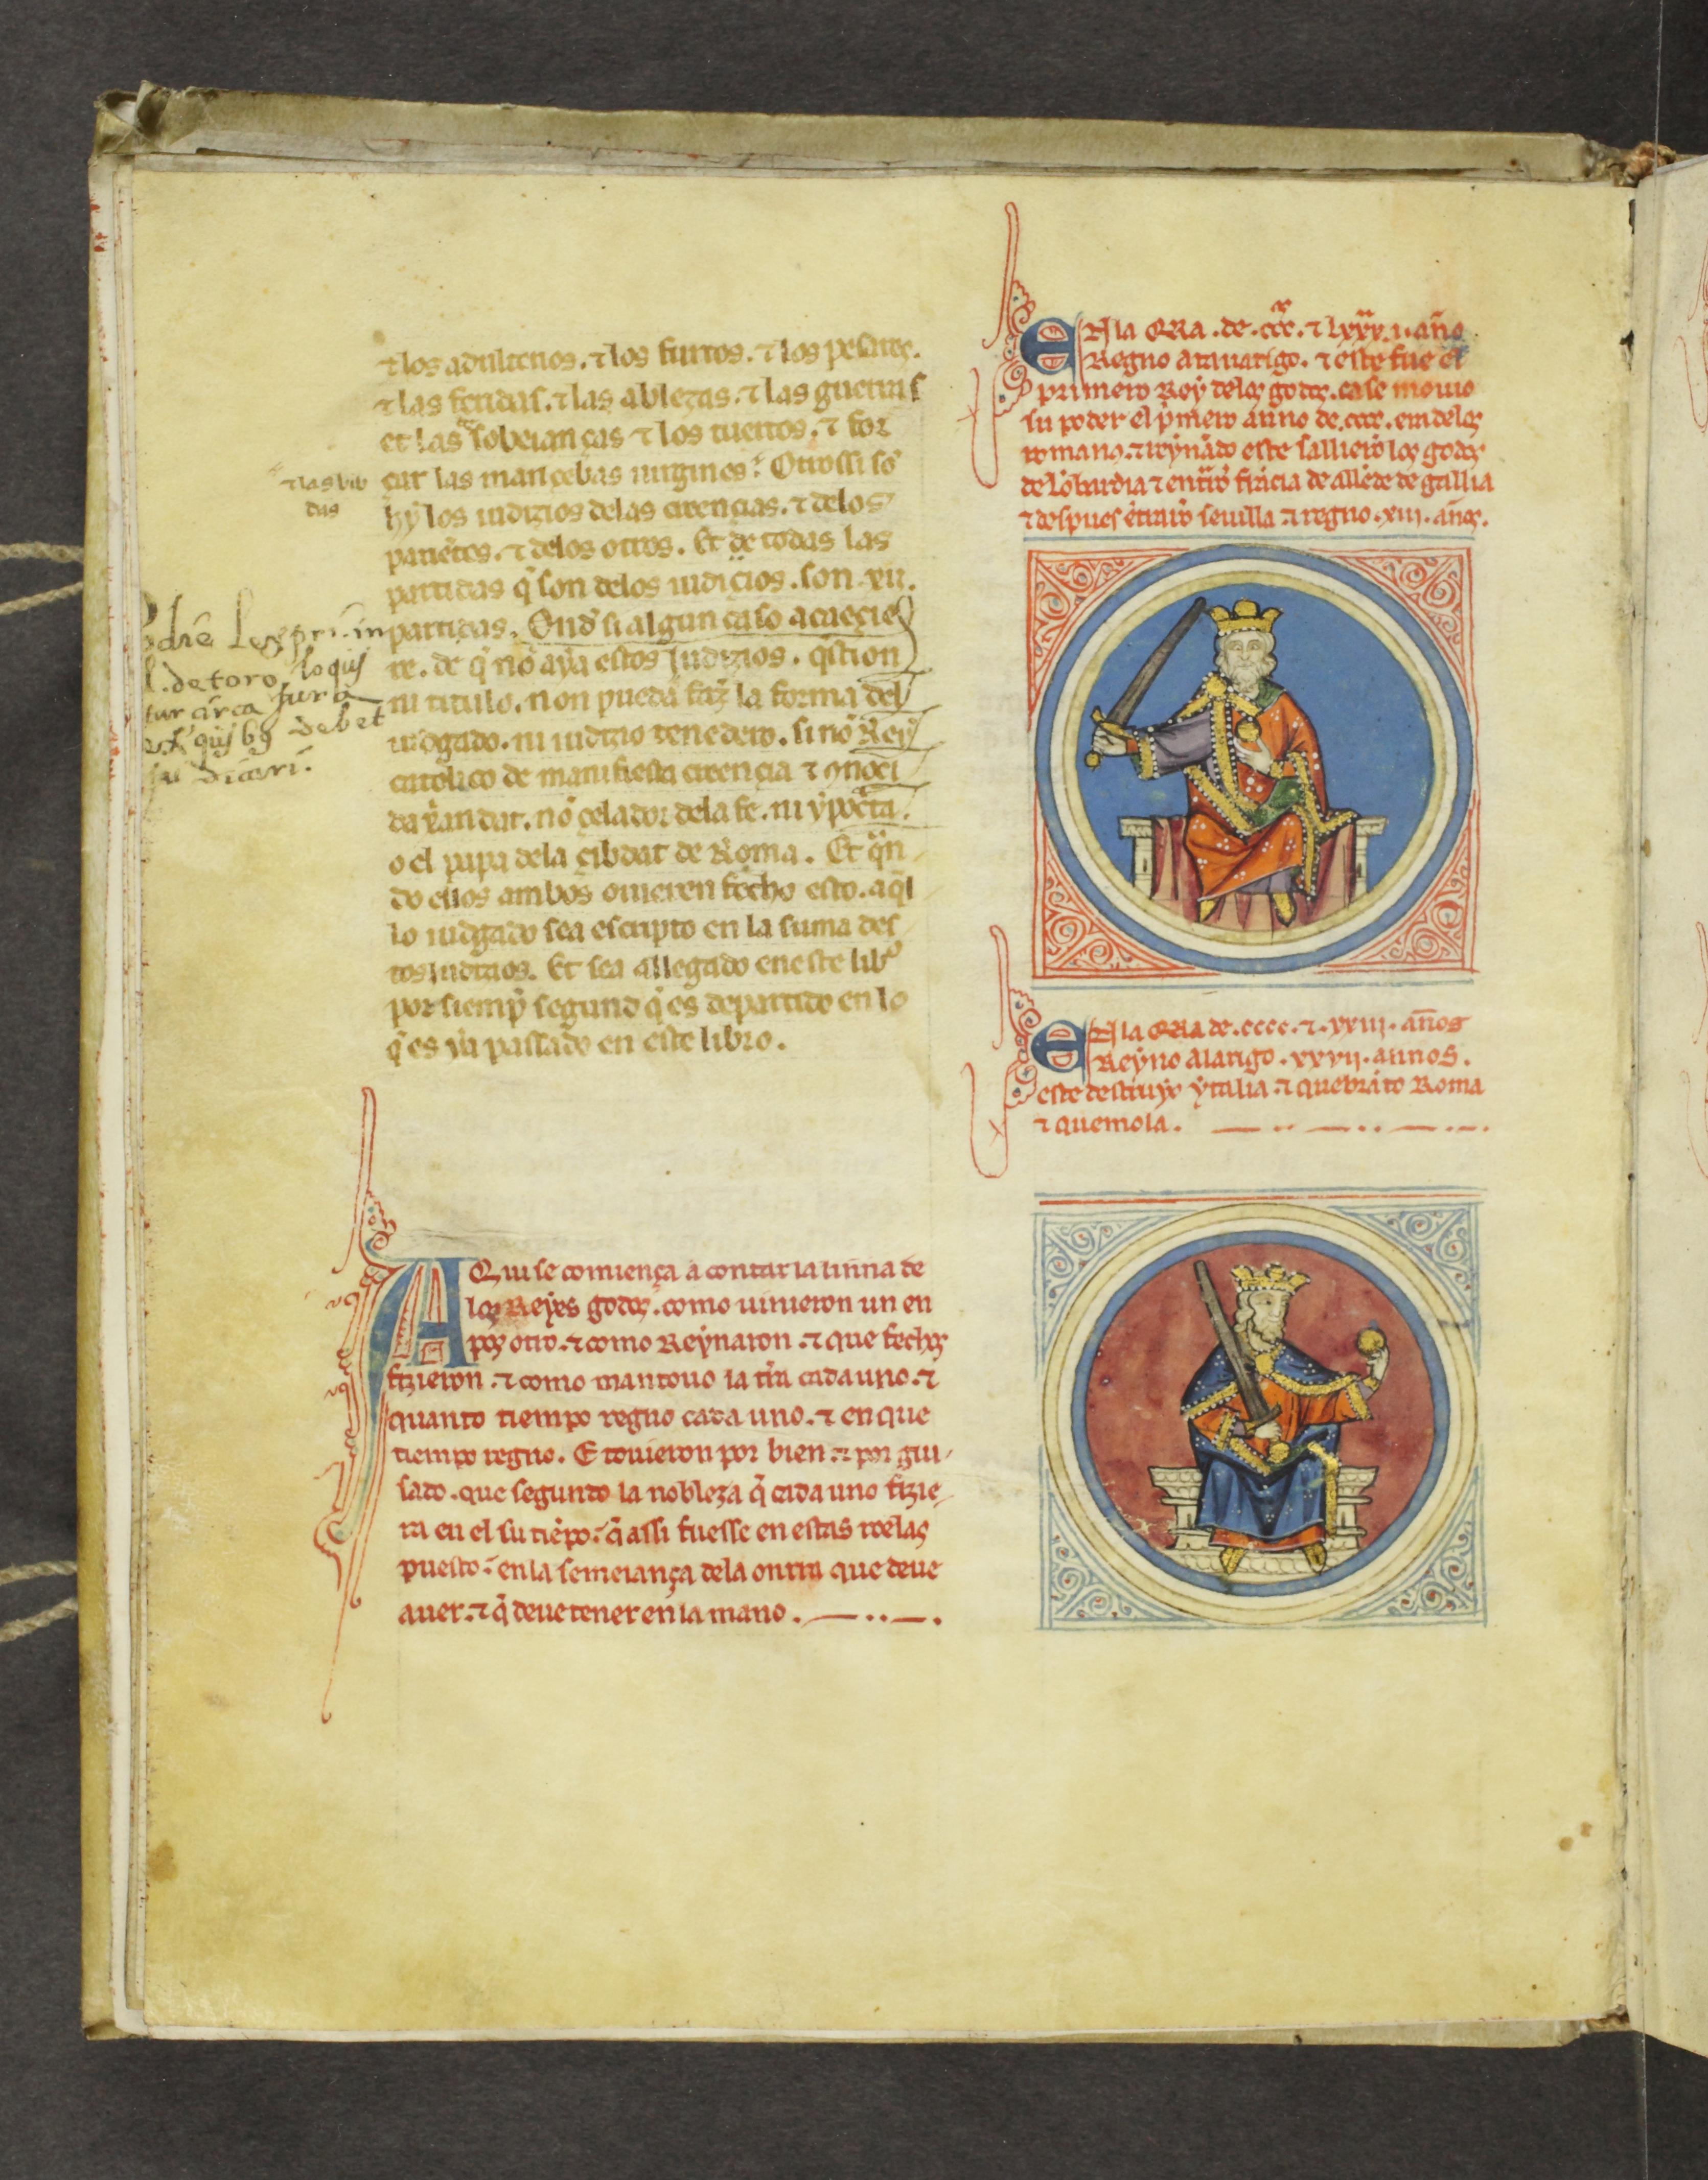 ⁊ los adulterios. ⁊ los furtos. ⁊ los
⁊ las feridas. ⁊ las ablezas. ⁊ las guerras
et las soberianças ⁊ los tuertos. ⁊ for
çar las mançebas uirgines. Otrossi sõ
⁊ las bib
das
hy los iudizios delas creencias. ⁊ delos
pariẽtes. ⁊ delos otros. Et de todas las
partidas q̃ son delos iudicios. son .xii.
partidas. Ond si algun caso acaeçie
re. de q̃ nõ aya estos judizios. q̃stion
ni titulo. non pueda faz̃ la forma del
iudgado. ni iudizio tenedero. si nõ Rey
catolico de manifiesta creencia ⁊
nõ çelador dela fe. ni
o el papa dela çibdat de Roma. Et q̃n
do ellos ambos ouieren fecho esto. aq̃l
lo iudgado sea escripto en la suma des
tos judizios. Et sea allegado en este libº
por siemp̃ segund q̃ es departido en lo
q̃ es ya passado en este libro.
in
l. de toro loquĩ
tur circa jura
debet
Aqui se comiença a contar la linna de
los Reyes godos. como uinieron un en
pos otro. ⁊ como Reynaron. ⁊ que fechos
fizieron. ⁊ como mantouo la tr̃ra cada uno. ⁊
quanto tiempo regno cada uno. ⁊ en que
tiempo regno. E touieron por bien. ⁊ por gui
sado. que segundo la nobleza q̃ cada uno fizie
ra en el su tiẽpo. q̃ assi fuesse en estas roelas
puesto. en la semeiança dela onrra que deue
auer. ⁊ q̃ deue tener en la mano.
En la ERa .de .ccc. ⁊ lxxx.i. año
Regno Atanarigo. ⁊ este fue el
primero Rey delos godos. ca se mouio
su poder el p̃mero anno de .cccc. em delos
romanos. ⁊ reynãdo este sallierõ los godos
de lõbardia ⁊ entrarõ frãcia de allẽde de gallia
⁊ despues ẽtrarõ seuilla ⁊ regno .xiii. años.
En la ERa de .cccc. ⁊ .xxiii. años
Reyno alarigo .xxvii. annos.
este destruyo ytalia. ⁊ quebrãto Roma
⁊ quemola.